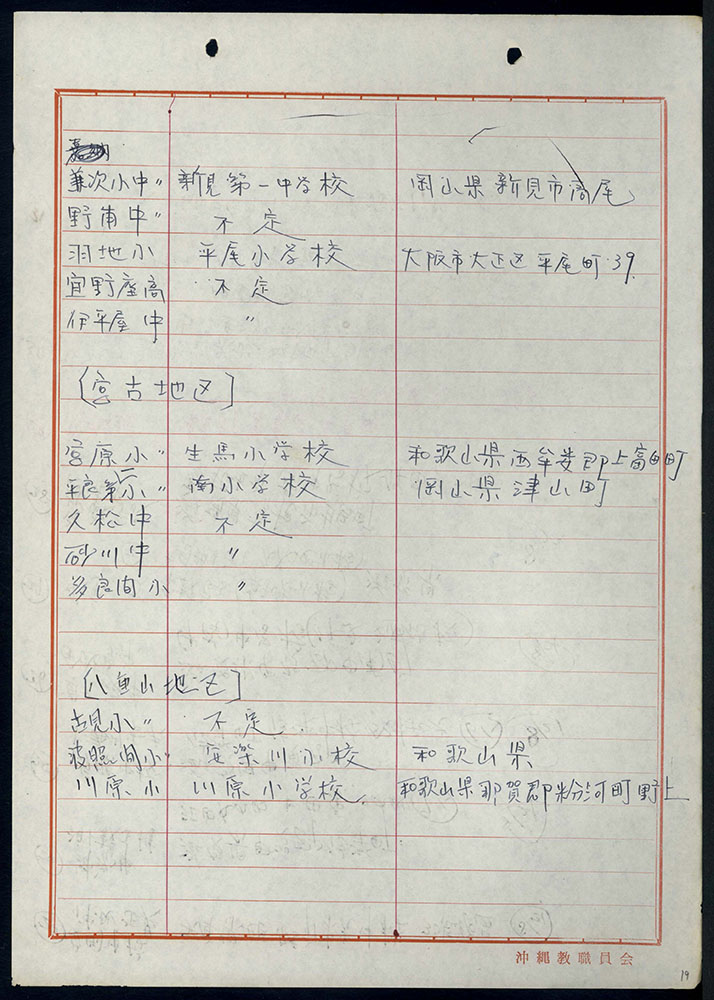 兼次小中〃 新見第一中学校 岡山県新見市高尾
野甫中〃 不定
羽地小 平尾小学校 大阪市大正区平尾町39.
宜野座高 不定
伊平屋中 〃
〔宮古地区〕
宮原小〃 生馬小学校 和歌山県西牟婁郡上富田町
平良第一小〃 南小学校 岡山県津山町
久松中 不定
砂川中 〃
多良間小 〃
〔八重山地区〕
古見小〃 不定
波照間小〃 安楽川小校 和歌山県
川原小 川原小学校 和歌山県那賀郡粉河町野上
沖縄教職員会
19